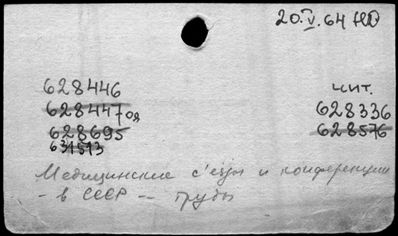 20.V.64
628446
628447 оя
628695
631513
чит.
628336
628576
Медицинские с'езды и конференции
- в СССР - труды